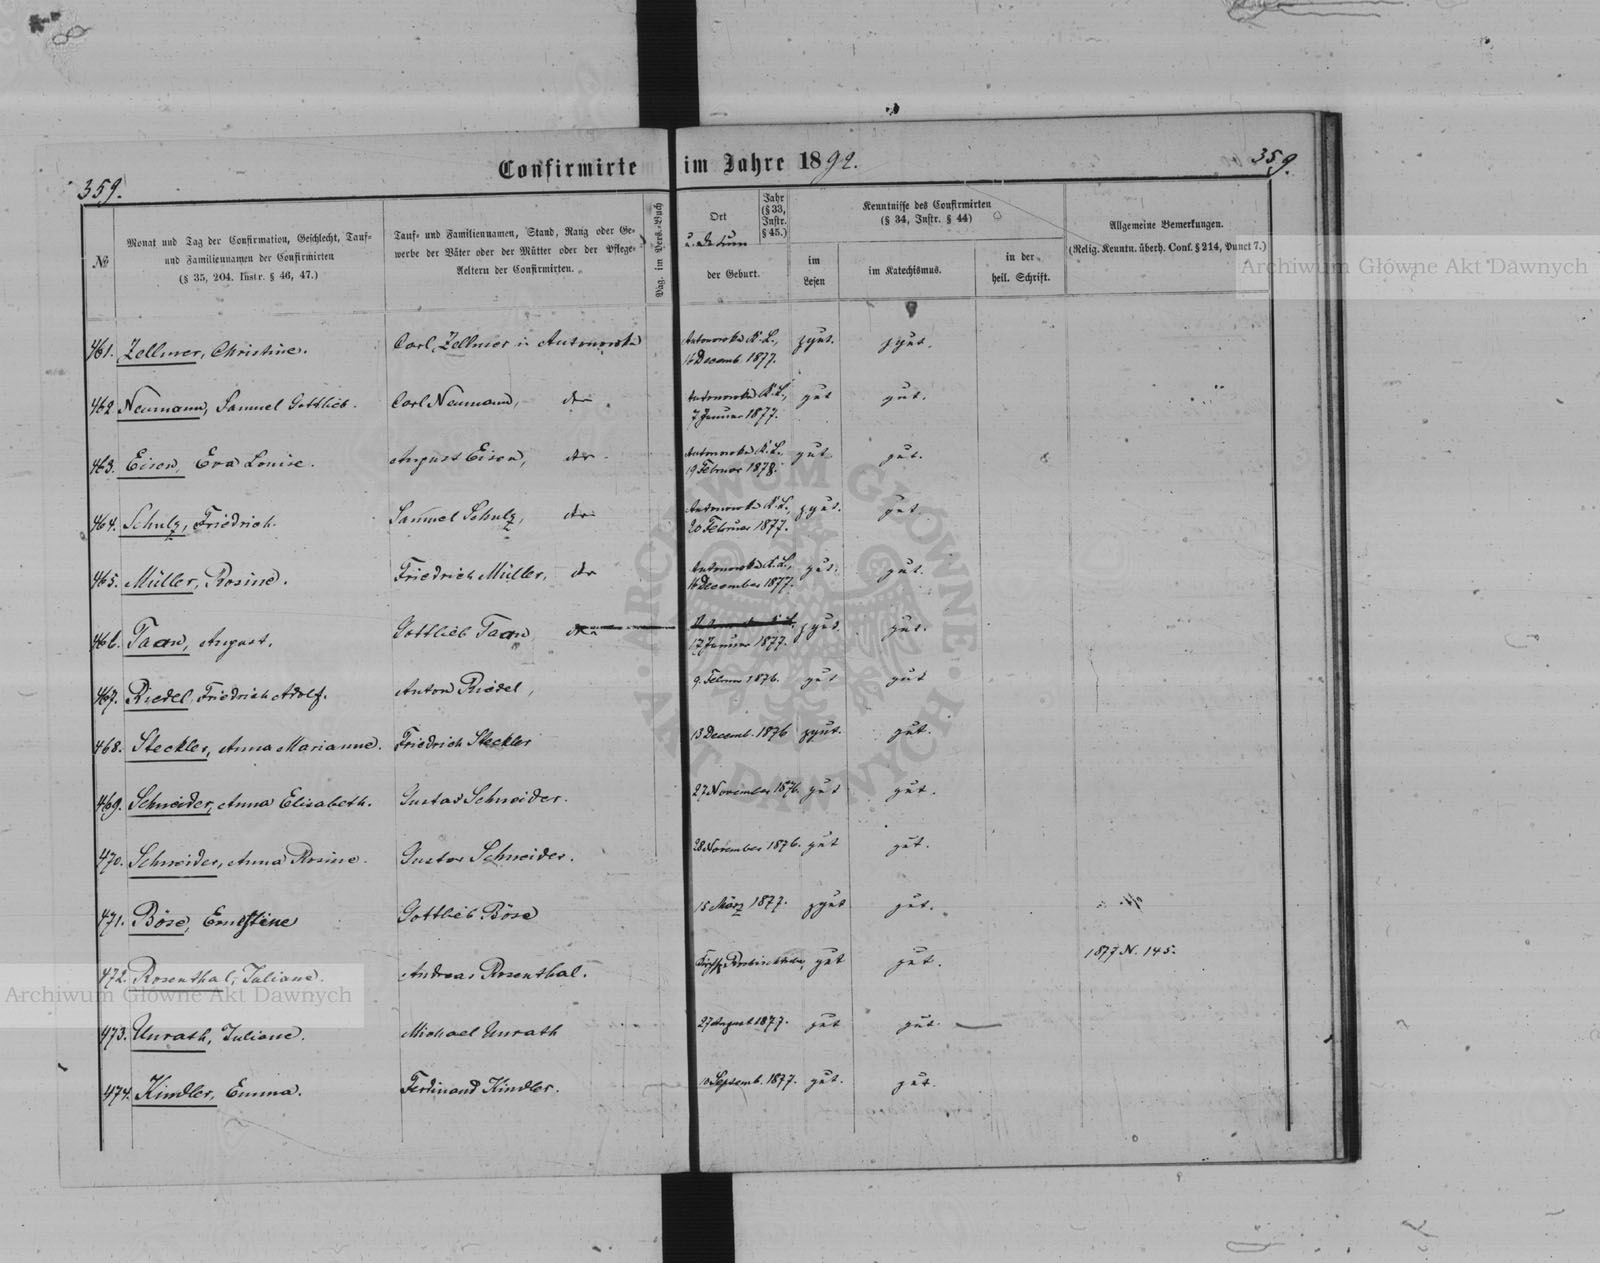 Confirmirte im Jahre 1892.
359.
359.
№
Monat und Tag der Confirmation, Geschlecht, Tauf-
und Familiennamen der Confirmirten
(§ 35, 204. Instr. § 46, 47.)
Tauf- und Familiennamen, Stand, Rang oder Ge-
werbe der Väter oder der Mütter oder der Pflege-
Aeltern der Confirmirten.
Pag. im Pers.-Buch
Ort
u. Datum
der Geburt.
Jahr
(§ 33,
Instr.
§ 45.)
Kenntnisse des Confirmirten
(§ 34, Instr. § 44)
im
Lesen
im Katechismus.
in der
heil. Schrift.
Allgemeine Bemerkungen.
(Relig. Kenntn. überh. Conf. § 214, Punct 7.)
461. Zellmer, Christine. Carl Zellmer in Antonowka Antonowka K. L., gut. gut.
16 Decemb 1877.
462 Neumann, Samuel Gottlieb. Carl Neumann, Antonowka K. L., gut gut.
7 Januar 1877.
463. Eisen, Eva Louise. August Eisen, Antonowka K. L., gut gut.
19 Februar 1878.
464. Schulz, Friedrich. Samuel Schulz, Antonowka K. L., gut. gut
20 Februar 1877.
465. Müller, Rosine. Friedrich Müller, Antonowka K. L., gut. gut.
16 December 1877.
466. Taan, August. Gottlieb Taan gut gut.
17 Januar 1877.
467. Riedel, Friedrich Adolf. Anton Riedel, 9. Februar 1876. gut gut
468. Steckler, Anna Marianne. Friedrich Steckler 13 Decemb. 1876 gut. gut.
469. Schneider, Anna Elisabeth. Gustav Schneider. 27 November 1876. gut gut.
470. Schneider, Anna Rosine. Gustav Schneider. 28 November 1876. gut gut.
471. Böse, Ernestine Gottlieb Böse 15 März 1877. gut gut.
472. Rosenthal, Juliane. Andreas Rosenthal. gut gut. 1877 N. 145.
473. Unrath, Juliane. Michael Unrath 27 August 1877. gut gut.
474. Kindler, Emma. Ferdinand Kindler. 10 Septemb. 1877. gut. gut.
Archiwum Główne Akt Dawnych
Archiwum Główne Akt Dawnych
ARCHIWUM GŁÓWNE
AKT DAWNYCH